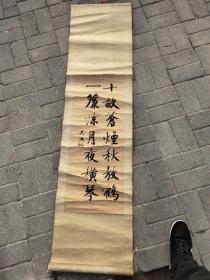 十畝蒼煙秋放鶴
一簾涼月夜橫琴